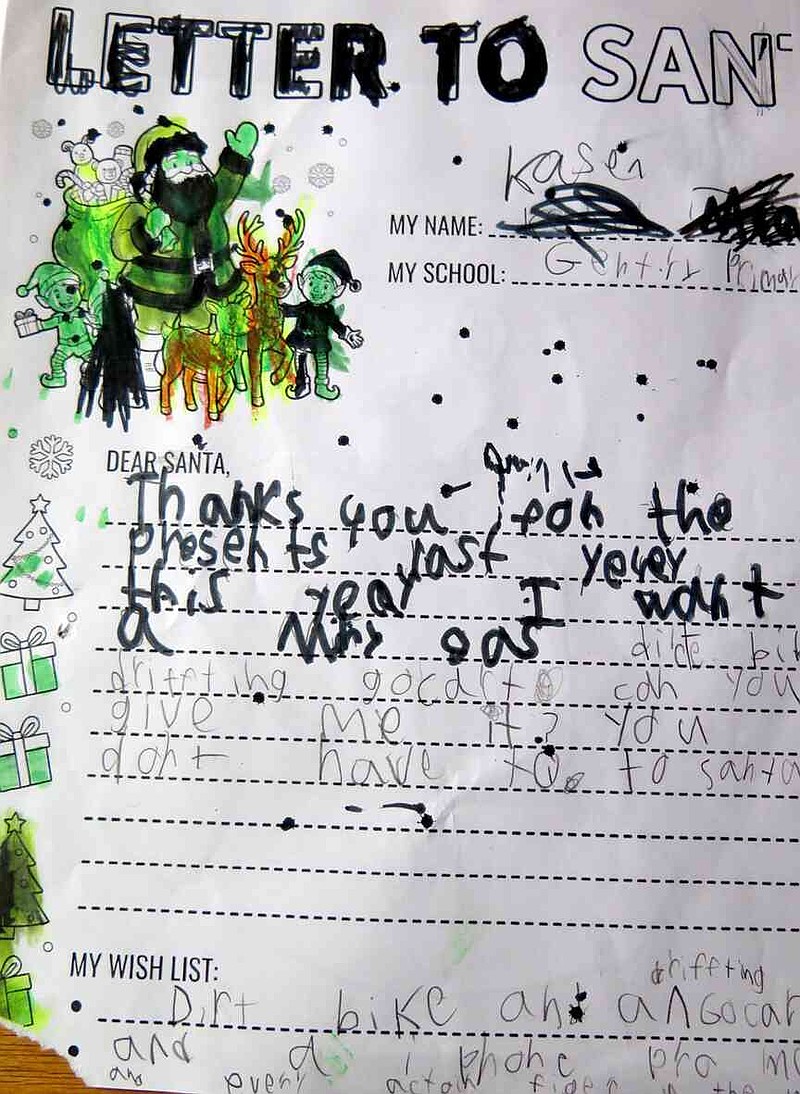 LETTER TO SAN
Kasen
MY NAME:
MY SCHOOL: Gentry Primar
DEAR SANTA,
Thanks you foh the
presents last yeuer
this year I want
a gas dilte bik
driftting gocart can you
give me it? you
dont have to. to santa
MY WISH LIST:
driffting
Dirt bike and an Gocar
and a i phone pro m
and every actoin figer in the